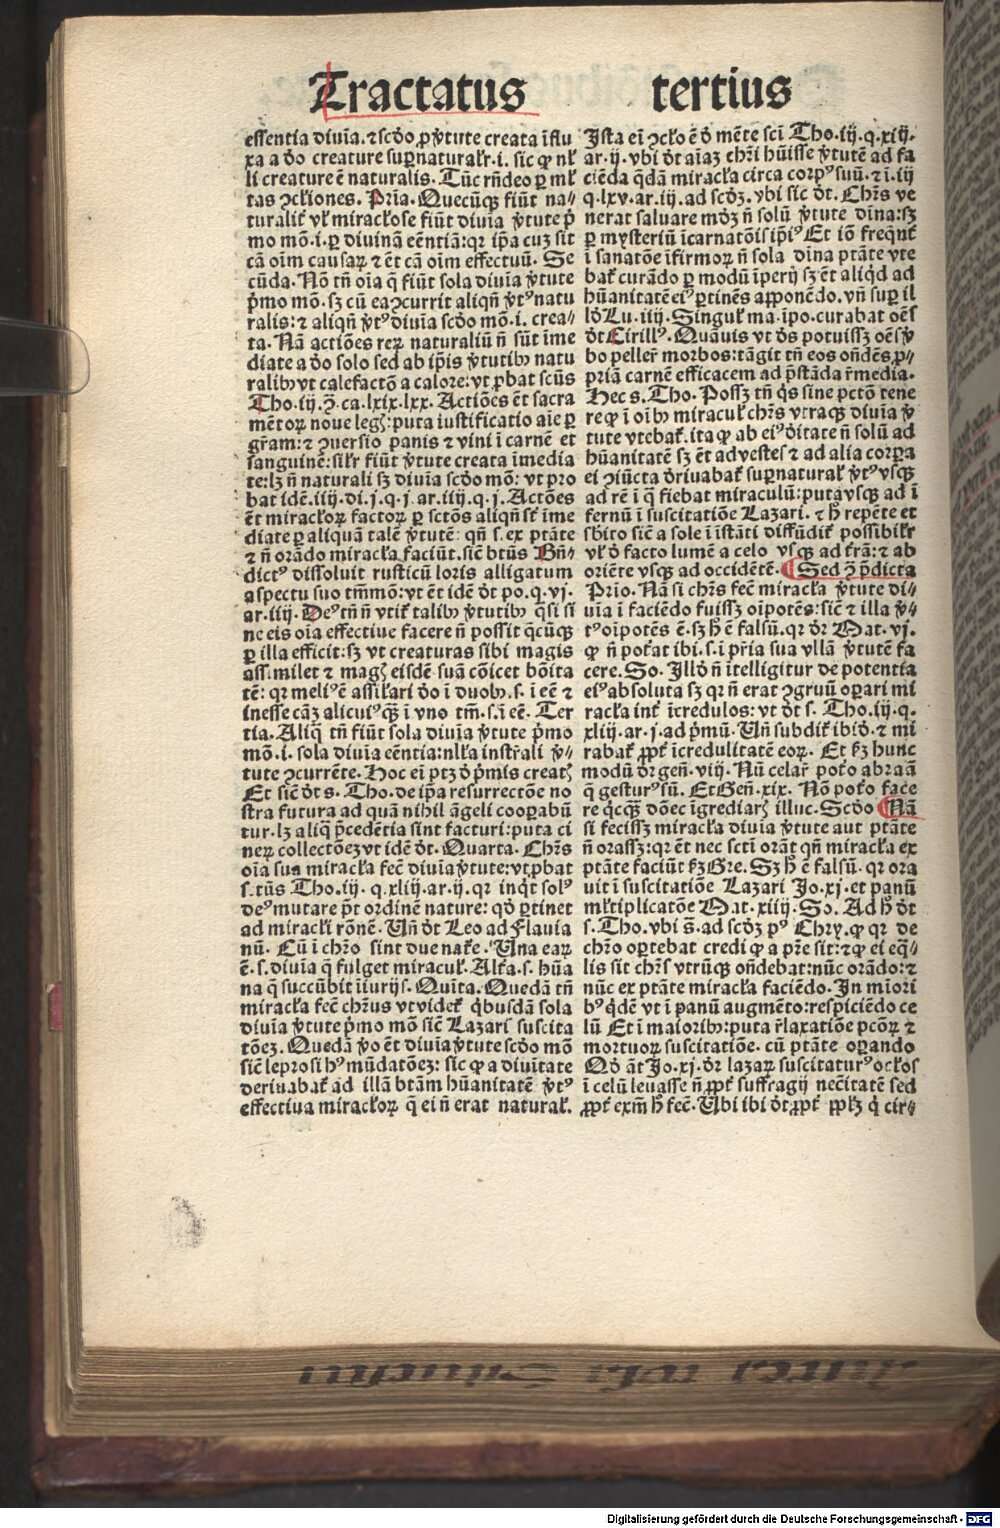 Tractatus tertius
essentia diuīa. ⁊ scd̄o ꝓ v̄tute creata īflu
xa a d̓o creature suꝑnaturalr̄.i. sic ꝙ nł
li creature ē naturalis. Tūc rn̄deo ꝑ mł
tas ꝯclōnes. Prīa. Quecūqꝫ fiūt na⸗
turalit̄ vł miraclōse fiūt diuīa v̄tute p̄
mo mō.i. ꝑ diuinā eēntiā: qꝛ ip̄a cuꝫ sit
cā oīm causaꝝ ⁊ ēt cā oīm effectuū. Se
cūda. Nō tn̄ oīa q̄ fiūt sola diuīa v̄tute
p̄mo mō. sꝫ cū ea ꝯcurrit aliqn̄ v̄tꝰ natu
ralis: ⁊ aliqn̄ v̄tꝰ diuīa scd̄o mō.i. crea⸗
ta. Nā actiōes reꝝ naturaliū n̄ sūt īme
diate a d̓o solo sed ab ip̄is v̄tutibꝰ natu
ralibꝰ vt calefactō a calore: vt ꝓbat scūs
Tho.iij.ꝯ̄.ca.lxix.lxx. Actiōes ēt sacra
mētoꝝ noue legꝭ: puta iustificatio aīe ꝑ
gr̄am: ⁊ ꝯuersio panis ⁊ vini ī carnē et
sanguinē: silr̄ fiūt v̄tute creata īmedia
te: lꝫ n̄ naturali sꝫ diuīa scd̄o mō: vt pro
bat idē.iiij.di.j.q.j.ar.iiij.q.j. Actōes
ēt miraclōꝝ factoꝝ ꝑ sctōs aliqn̄ sł īme
diate ꝑ aliquā talē v̄tutē: qn̄ s. ex ptāte
⁊ n̄ orādo miracła faciūt. siē btūs Bn̄i⸗
dictꝰ dissoluit rusticū loris alligatum
aspectu suo tm̄mō: vt ēt idē d̓t po.q.vj.
ar.iiij. Deꝰ tn̄ n̄ vtit̄ talibꝰ v̄tutibꝰ q̄si si
ne eis oīa effectiue facere n̄ possit q̄cūqꝫ
ꝑ illa efficit: sꝫ vt creaturas sibi magis
assimilet ⁊ magꝭ eisdē suā cōicet bōita
tē: qꝛ meliꝰ ē assilari d̓o ī duobꝰ.s. ī eē ⁊
inesse cāꝫ alicuiꝰ qꝫ̄ ī vno tm̄.s. ī eē. Ter
tia. Aliq̄ tn̄ fiūt sola diuīa v̄tute p̄mo
mō.i. sola diuīa eēntia: nłla instr̄ali v̄⸗
tute ꝯcurrēte. Hoc eī ptꝫ d̓ p̄mis creatꝭ
Et siē d̓t s. Tho. de ip̄a resurrectōe no
stra futura ad quā nihil āgeli cooꝑabū
tur. lꝫ aliq̄ p̄cedētia sint facturi: puta ci
neꝝ collectōeꝫ vt idē d̓t. Quarta. Chr̄s
oīa sua miracła fec̄ diuīa v̄tute: vt ꝓbat
s.tūs Tho.iij.q.xliij.ar.ij. qꝛ inqt̄ solꝰ
deꝰ mutare pt̄ ordinē nature: qd̄ ꝑtinet
ad miracłi rōnē. Un̄ d̓t Leo ad Flauia
nū. Cū ī chr̄o sint due nat̄e. Una eaꝝ
ē.s. diuīa q̄ fulget miracuł. Alt̄a.s. hūa
na q̄ succūbit īiurijs. Quīta. Quedā tn̄
miracła fec̄ chr̄us vt videt̄ qbusdā sola
diuīa v̄tute p̄mo mō siē Lazari suscita
tōeꝫ. Quedā v̄o ēt diuīa v̄tute scd̄o mō
siē leprosi hꝰ mūdatōeꝫ: sic ꝙ a diuītate
deriuabat̄ ad illā btām hūanitatē v̄tꝰ
effectiua miraclōꝝ q̄ ei n̄ erat natural̄.
Ista eī ꝯclō ē d̓ mēte scī Tho.iij.q.xiij.
ar.ij. vbi d̓t aīaꝫ chr̄i hūisse v̄tutē ad fa
ciēda q̄dā miracła circa corpꝰ suū. ⁊ ī.iij
q.lxv.ar.iij. ad scd̄ꝫ. vbi sic d̓t. Chr̄s ve
nerat saluare mdꝫ n̄ solū v̄tute dīna: sꝫ
ꝑ mysteriū īcarnatōis ip̄iꝰ Et iō freqnt̄
ī sanatōe īfirmoꝝ n̄ sola dīna ptāte vte
bat̄ curādo ꝑ modū īperij sꝫ ēt aliqd ad
hūanitatē eiꝰ ꝑtinēs apponēdo. vn̄ suꝑ il
ld̓ Lu.iiij. Singuł ma.īpo.curabat oēs
d̓t Cirillꝰ. Quāuis vt dꝰ potuissꝫ oēs v̄
bo pellēr morbos: tāgit tn̄ eos on̄dēs ꝓ⸗
priā carnē efficacem ad p̄stāda r̄media.
Hec s. Tho. Possꝫ tn̄ qs sine pctō tene
re ꝙ ī oībꝰ miracul̄ chr̄s vtraqꝫ diuīa v̄
tute vtebat̄. ita ꝙ ab eiꝰ d̓itate n̄ solū ad
hūanitatē sꝫ ēt ad vestes ⁊ ad alia corꝑa
ei ꝯiūcta d̓riuabat̄ suꝑnatural̄ v̄tꝰ vsqꝫ
ad rē ī q̄ fiebat miraculū: puta vsqꝫ ad ī
fernū ī suscitatiōe Lazari. ⁊ h̄ repēte et
sbito siē a sole ī īstāti diffūdit̄ possibilr̄
vł d̓ facto lumē a celo vsqꝫ ad tr̄ā: ⁊ ab
oriēte vsqꝫ ad occidētē. ¶ Sed ꝯ p̄dicta
Prio. Nā si chr̄s fec̄ miracła v̄tute di⸗
uīa ī faciēdo fuissꝫ oīpotēs: siē ⁊ illa v̄⸗
tꝰ oīpotēs ē. sꝫ h̄ ē falsū. qꝛ d̓r Mat.vj.
ꝙ n̄ potat̄ ibi.s. ī pr̄ia sua vllā v̄tutē fa
cere. So. Illd̓ n̄ ītelligitur de potentia
eiꝰ absoluta sꝫ qꝛ n̄ erat ꝯgruū oꝑari mi
racła int̄ īcredulos: vt d̓t s. Tho.iij.q.
xliij.ar.j.ad p̄mū. Un̄ subdit̄ ibid̓. ⁊ mi
rabat̄ ꝓpt̄ īcredulitatē eoꝝ. Et scd̄ꝫ hunc
modū d̓r gen̄.viij. Nū celar̄ potō abraā
q̄ gesturꝰ sū. Et Gen̄.xix. Nō potō face
re qcqꝫ̄ dōec īgrediarꝭ illuc. Scd̄o ¶ Nā
si fecissꝫ miracła diuīa v̄tute aut ptāte
n̄ orassꝫ: qꝛ ēt nec sctī orāt qn̄ miracła ex
ptāte faciūt scd̄ꝫ Gre. Sꝫ h̄ ē falsū. qꝛ ora
uit ī suscitatiōe Lazari Jo.xj. et panū
młtiplicatōe Mat.xiiij. So. Ad h̄ d̓t
s. Tho. vbi s̄. ad scd̄ꝫ pꝰ Chry. ꝙ qꝛ de
chr̄o oꝑtebat credi ꝙ a pr̄e sit: ⁊ ꝙ ei eq̄⸗
lis sit chr̄s vtrūqꝫ on̄debat: nūc orādo: ⁊
nūc ex ptāte miracła faciēdo. In mīori
bꝰ qdē vt ī panū augmēto: respiciēdo ce
lū Et ī maioribꝰ: puta r̄laxatiōe pc̄oꝝ ⁊
mortuoꝝ suscitatiōe. cū ptāte oꝑando
Qd̄ āt Jo.xj. d̓r lazaꝝ suscitaturꝰ oclōs
ī celū leuasse n̄ ꝓpt̄ suffragij necītatē sed
ꝓpt̄ exm̄ h̄ fec̄. Ubi ibi d̓t ꝓpt̄ pplꝫ q̄ cir⸗
Digitalisierung gefördert durch die Deutsche Forschungsgemeinschaft - DFG